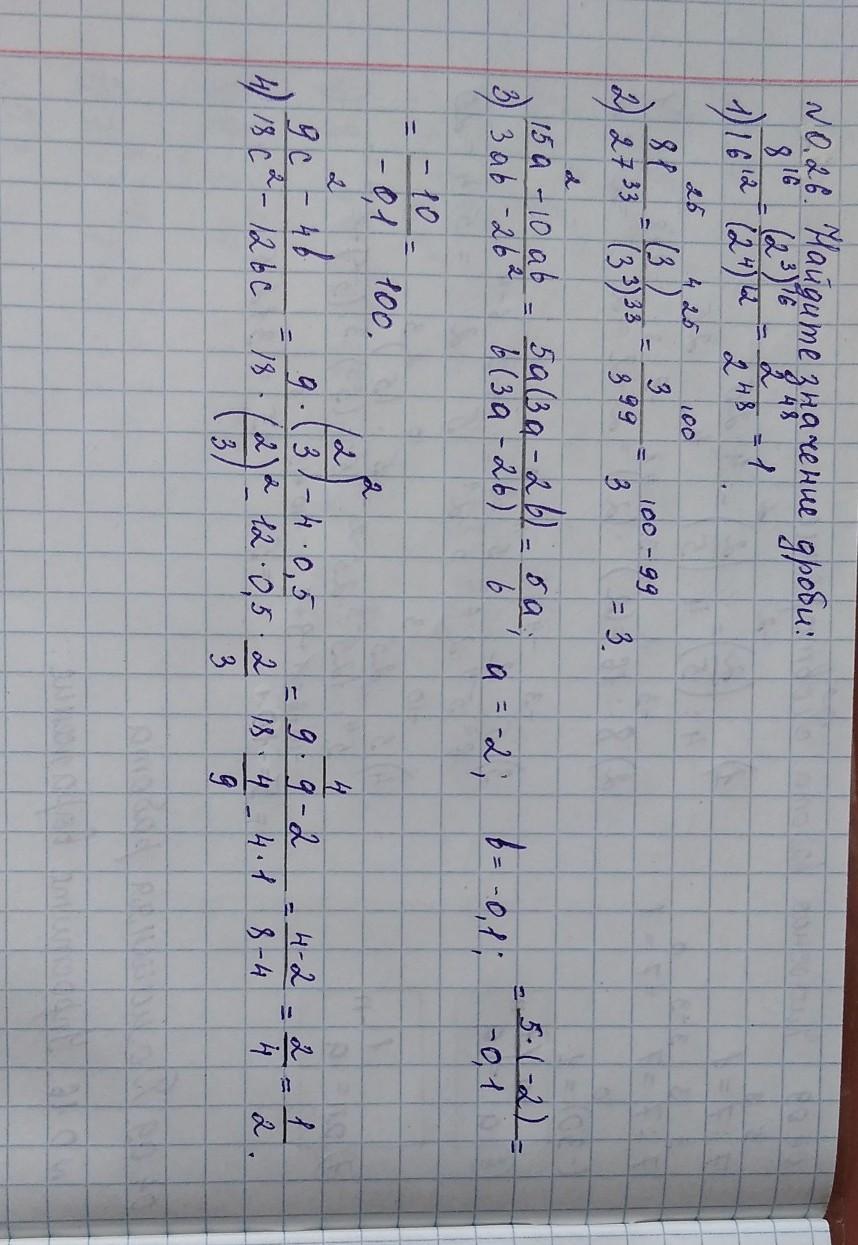 N 0.26. Найдите значение дроби:
1) 8^16/16^12 = (2^3)^16/(2^4)^12 = 2^48/2^48 = 1.
2) 81^25/27^33 = (3^4)^25/(3^3)^33 = 3^100/3^99 = 3^100-99 = 3.
3) 15a^2 - 10ab/3ab - 2b^2 = 5a(3a - 2b)/b(3a - 2b) = 5a/b; a = -2; b = -0,1; = 5·(-2)/-0,1 =
= -10/-0,1 = 100.
4) 9c^2 - 4b/18c^2 - 12bc = 9·(2/3)^2 - 4·0,5/18·(2/3)^2 - 12·0,5·2/3 = 9·4/9 - 2/18·4/9 - 4·1 = 4-2/8-4 = 2/4 = 1/2.